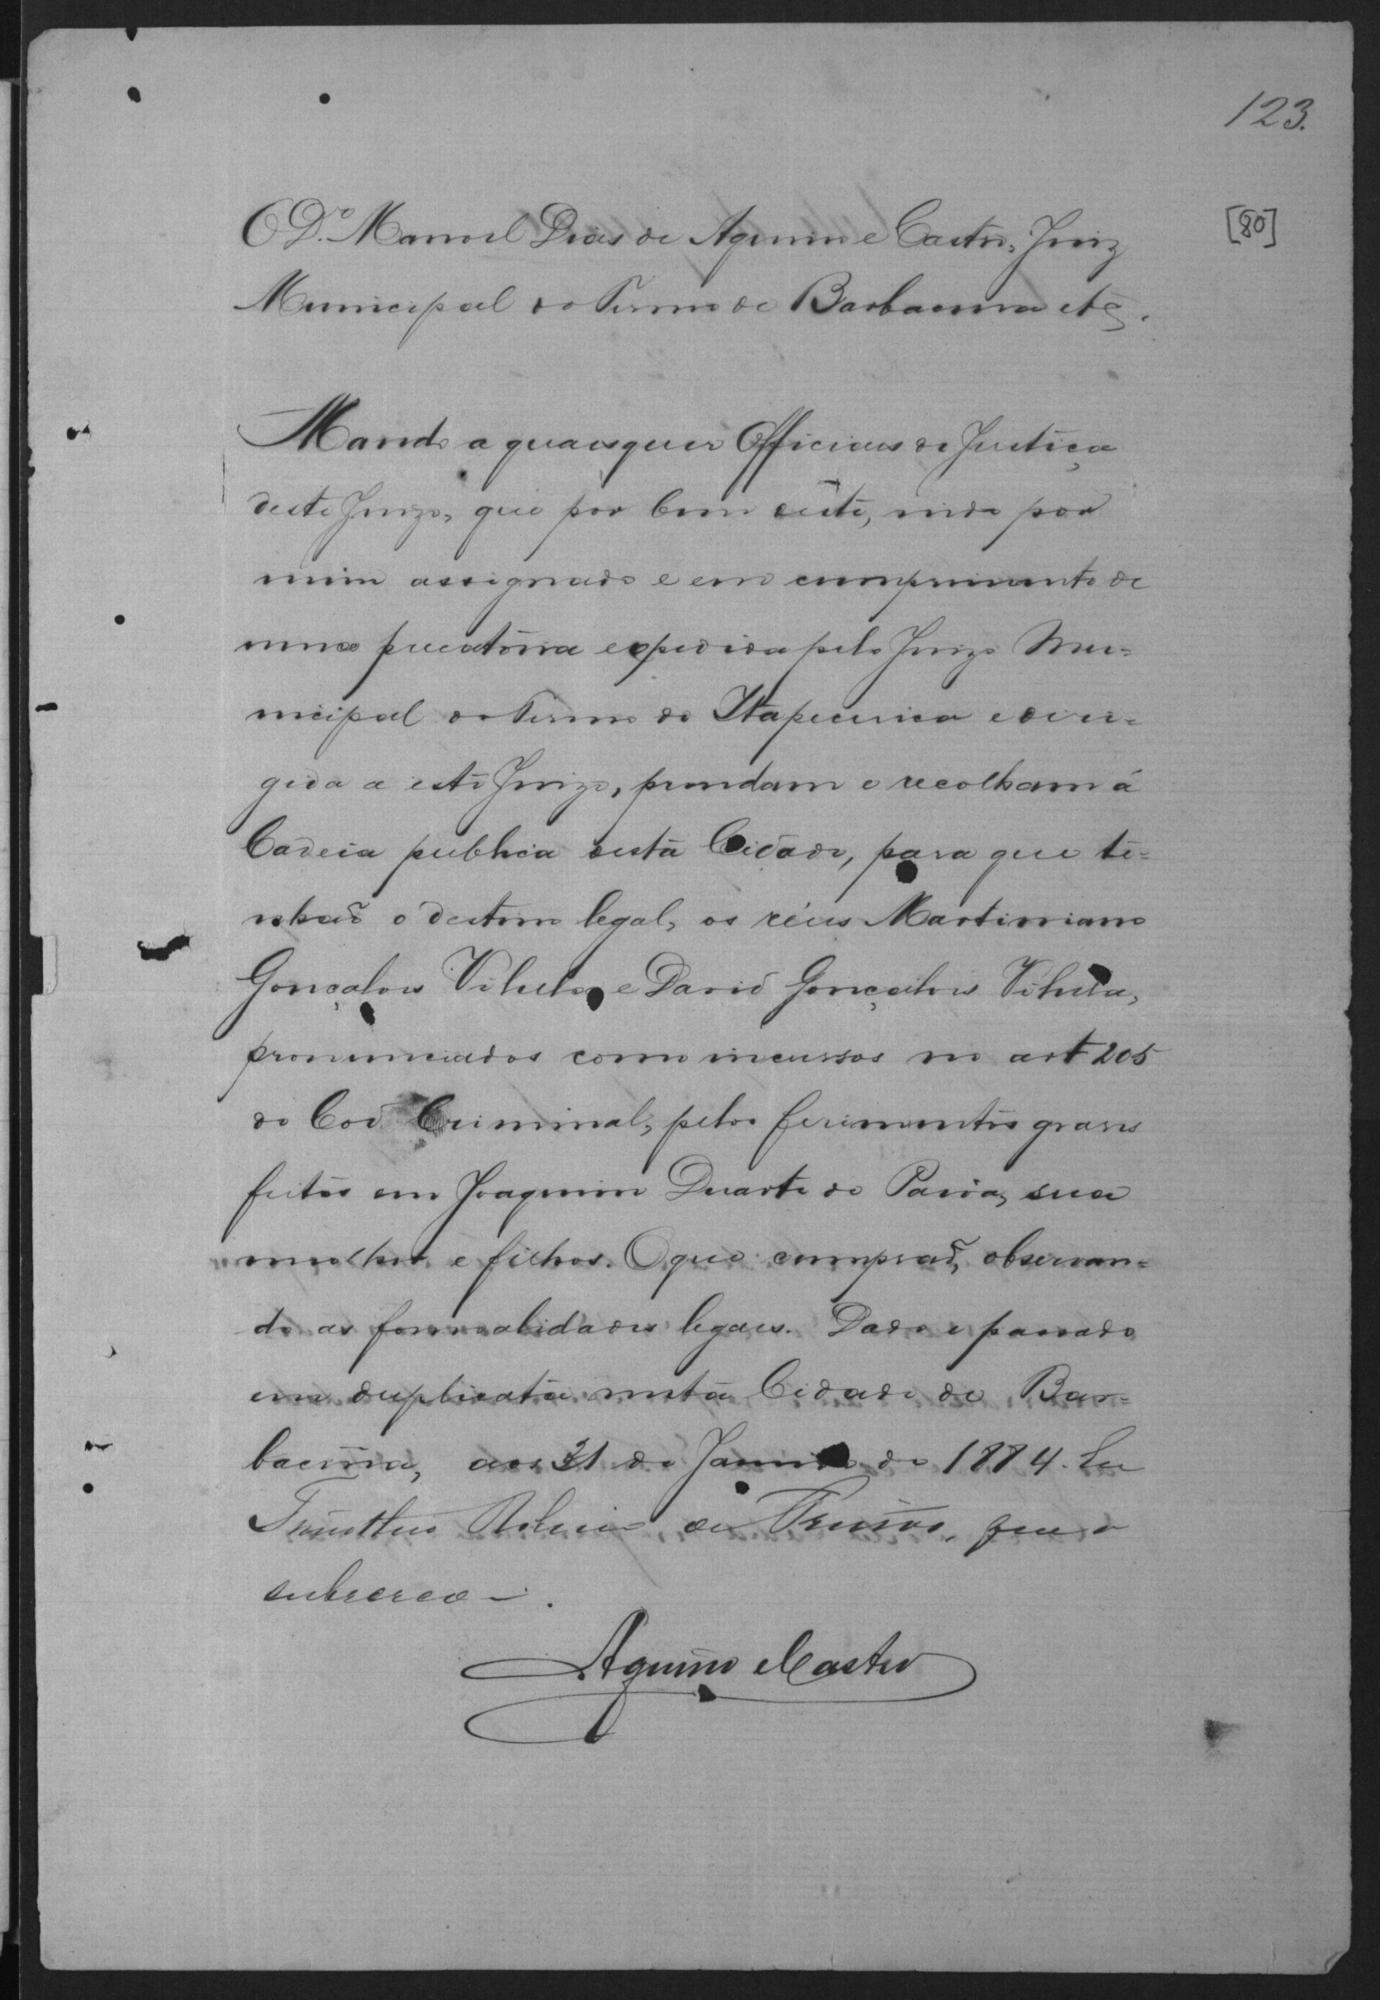 123.
[80]
O Dr. Manoel Dias de Aquino e Castro, Juiz
Municipal do Termo de Barbacena etc.
Mando a quaesquer Officiaes de Justiça
deste Juizo, que por bem deste, indo por
mim assignado e em cumprimento de
uma precatoria expedida pelo Juizo Mu=
nicipal do Termo de Itapecerica e diri=
gida a este Juizo, prendam e recolham á
Cadeia publica desta Cidade, para que te=
nhaõ o destino legal, os réus Martiniano
Gonçalves Vilela e David Gonçalves Vilela,
pronunciados como incursos no art 205
do Cod Criminal, pelos ferimentos graves
feitos em Joaquim Duarte de Paiva, sua
mulher e filhos. O que cumpraõ, observan=
do as formalidades legaes. Dado e passado
em duplicata nesta Cidade de Bar=
bacena, aos 31 de Janeiro de 1884. Eu
de que o
subscrevo.
Aquino e Castro